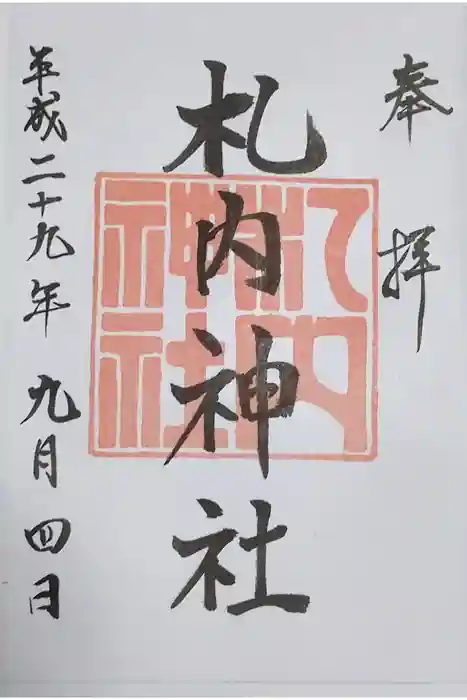 奉拝
札内神社
札内神社
平成二十九年九月四日